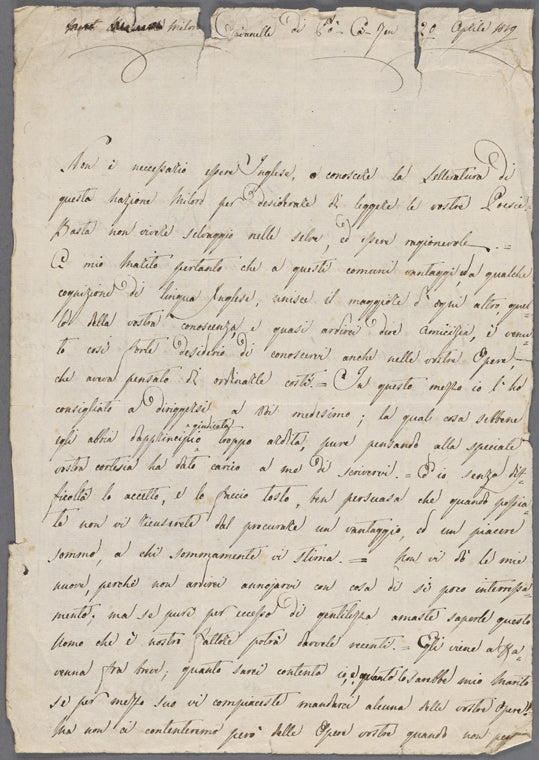 Milord Crespinelle di Pò - Cà Zen 20 Aprile 1819
Non è necessario essere Inglese, o conoscere la Letteratura di
questa nazione Milord per desiderare di leggere le vostre Poesie -
Basta non vivere selvaggio nelle selve, ed essere ragionevole. =
A mio Marito pertanto che a questi comuni vantaggi, da qualche
cognizione di lingua Inglese, unisce il maggiore d'ogni altro, quel-
lo della vostra conoscenza, e quasi ardirei dire Amicizia, è venu-
to così forte desiderio di conoscervi anche nelle vostre Opere,
che aveva pensato di ordinarle costì. = In questo mezzo io l'ho
consigliato a diriggersi a Voi medesimo; la qual cosa sebbene
egli abbia dapprincipio giudicata troppo ardita, pure pensando alla speciale
vostra cortesia ha dato carico a me di scrivervi. = Ed io senza dif-
ficoltà lo accetto, e lo faccio tosto, ben persuasa che quando possia-
te non vi ricuserete dal procurare un vantaggio, ed un piacere
sommo, a chi sommamente vi stima. = Non vi dò le mie
nuove, perchè non ardirei annojarvi con cosa di sì poco interessa-
mento; ma se pure per eccesso di gentilezza amaste saperle questo
Uomo che è nostro Fattore potrà darvele recenti. = Egli viene a Ra-
venna fra breve; quanto sarei contenta io, e quanto lo sarebbe mio Marito
se per mezzo suo vi compiaceste mandarci alcuna delle vostre Opere!
Ma non ci contenteremo però delle Opere vostre quando non